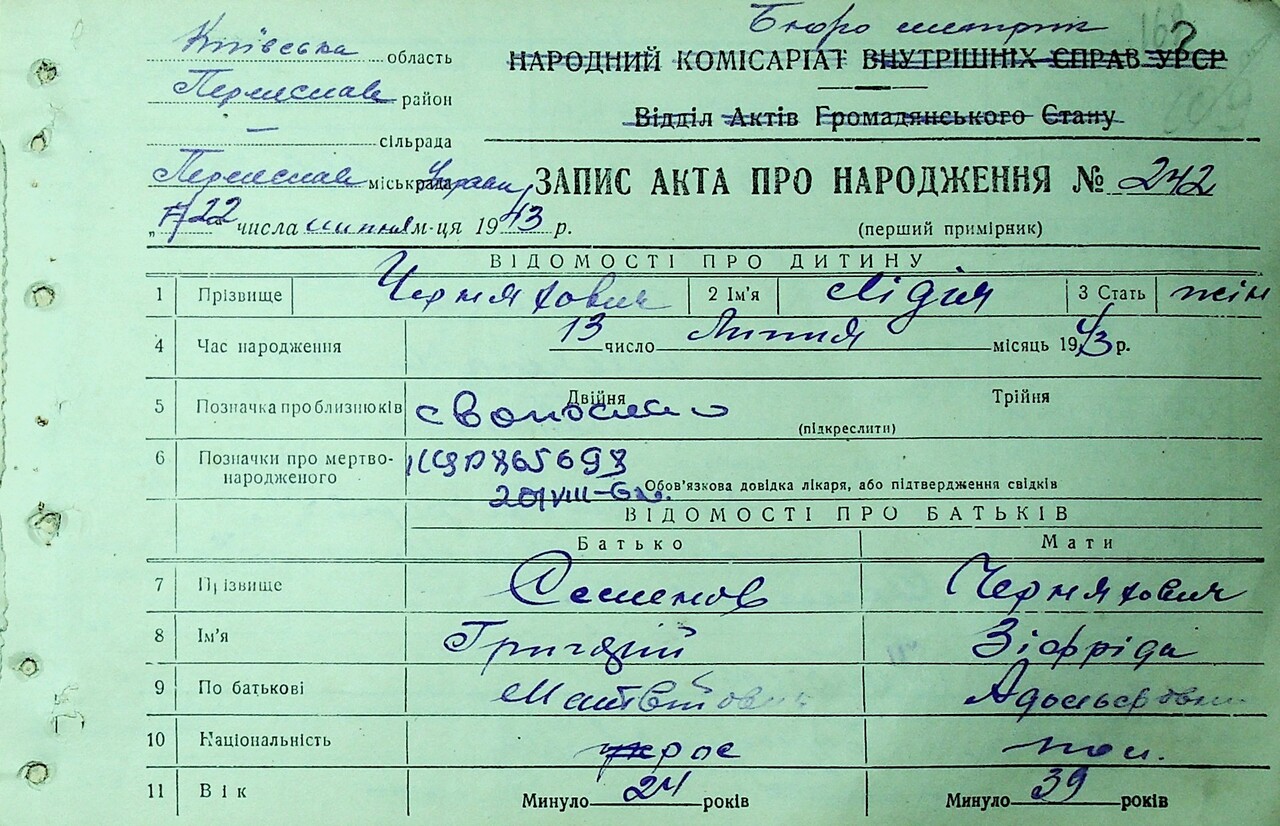 Бюро метрик
Київська область
НАРОДНИЙ КОМІСАРІАТ ВНУТРІШНІХ СПРАВ УРСР
Переяслав район
Відділ Актів Громадянського Стану
— сільрада
Переяслав міськрада Управи
ЗАПИС АКТА ПРО НАРОДЖЕННЯ № 242
„22 числа липня м-ця 1943 р.
(перший примірник)
ВІДОМОСТІ ПРО ДИТИНУ
1 Прізвище Черняхович 2 Ім'я Лідія 3 Стать жін
4 Час народження 13 число Липня місяць 1943 р.
5 Позначка про близнюків Двійня Трійня
(підкреслити)
6 Позначки про мертвонародженого
Обов'язкова довідка лікаря, або підтвердження свідків
ВІДОМОСТІ ПРО БАТЬКІВ
Батько Мати
7 Прізвище Семенов Черняхович
8 Ім'я Григорій Зіфріда
9 По батькові Матвійович Адольфовна
10 Національність рос пол.
11 Вік Минуло 24 років Минуло 39 років